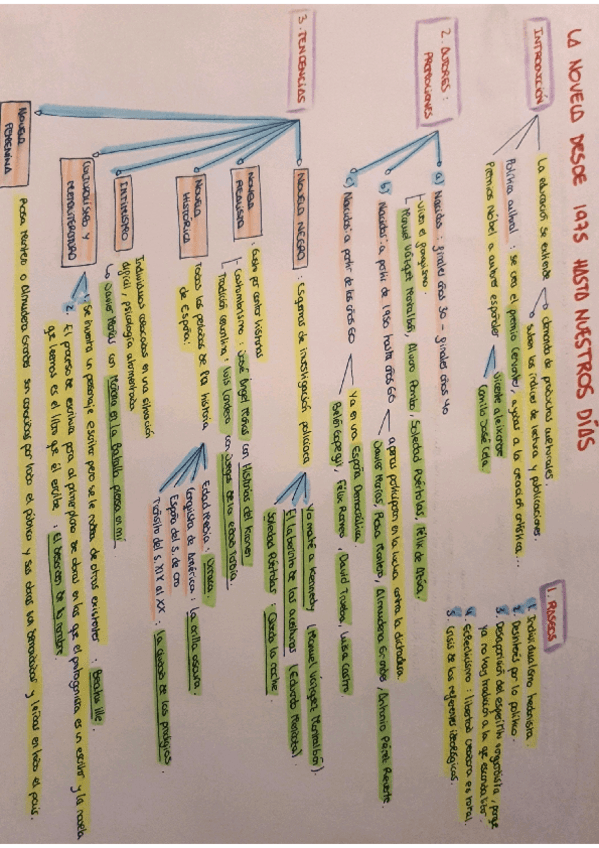 LA NOVELA DESDE 1975 HASTA NUESTROS DÍAS
INTRODUCCIÓN
La educación se extiende
demanda de productos culturales.
suben los índices de lectura y publicaciones.
Política cultural: se crea el premio Cervantes, ayudas a la creación artística...
Premios Nobel a autores españoles
Vicente Aleixandre
Camilo José Cela
1. RASGOS
1. Individualismo hedonista.
2. Desinterés por lo político.
3. Desaparición del espíritu vanguardista, porque
ya no hay tradición a la que escandalizar.
4. Eclecticismo: libertad creadora es total.
5. Crisis de los referentes ideológicos.
2. AUTORES:
PROMOCIONES
a) Nacidos: finales años 30 - finales años 40
viven el franquismo.
Manuel Vázquez Montalbán, Álvaro Pombo, Soledad Puértolas, Félix de Azúa.
b) Nacidos: a partir de 1950 hasta años 60
apenas participaron en la lucha contra la dictadura
Javier Marías, Rosa Montero, Almudena Grandes, Antonio Pérez Reverte.
c) Nacidos: a partir de los años 60
Ya en una España Democrática.
Belén Gopegui, Félix Romeo, David Trueba, Luisa Castro
3. TENDENCIAS
NOVELA NEGRA
: Esquemas de investigación policiaca
Yo maté a Kennedy (Manuel Vázquez Montalbán).
El laberinto de las aceitunas (Eduardo Mendoza)
Soledad Puértolas: Queda la noche.
NOVELA REALISTA
: Gusto por contar historias
Costumbrismo: José Ángel Mañas con Historias del Kronen
Tradición cervantina: Luis Landero con Juegos de la edad tardía.
NOVELA
HISTÓRICA
Todos los periodos de la historia
de España:
Edad Media: Urraca
Conquista de América: La orilla oscura.
España del s. de oro
Tránsito del s. XIX al XX: La ciudad de los prodigios.
INTIMISMO
Individuos colocados en una situación
difícil, psicología atormentada
Javier Marías con Mañana en la batalla piensa en mí.
CULTURALISMO Y
METALITERATURA
1. Se inventa un personaje escritor pero se le rodea de otros existentes: Beatus Ille.
2. El proceso de escritura pasa al primer plano de obras en las que el protagonista es un escritor y la novela
que leemos es el libro que él escribe: El desorden de tu nombre.
NOVELA
FEMENINA
Rosa Montero o Almudena Grandes son conocidas por todo el público y sus obras son demandadas y leídas en todo el país.